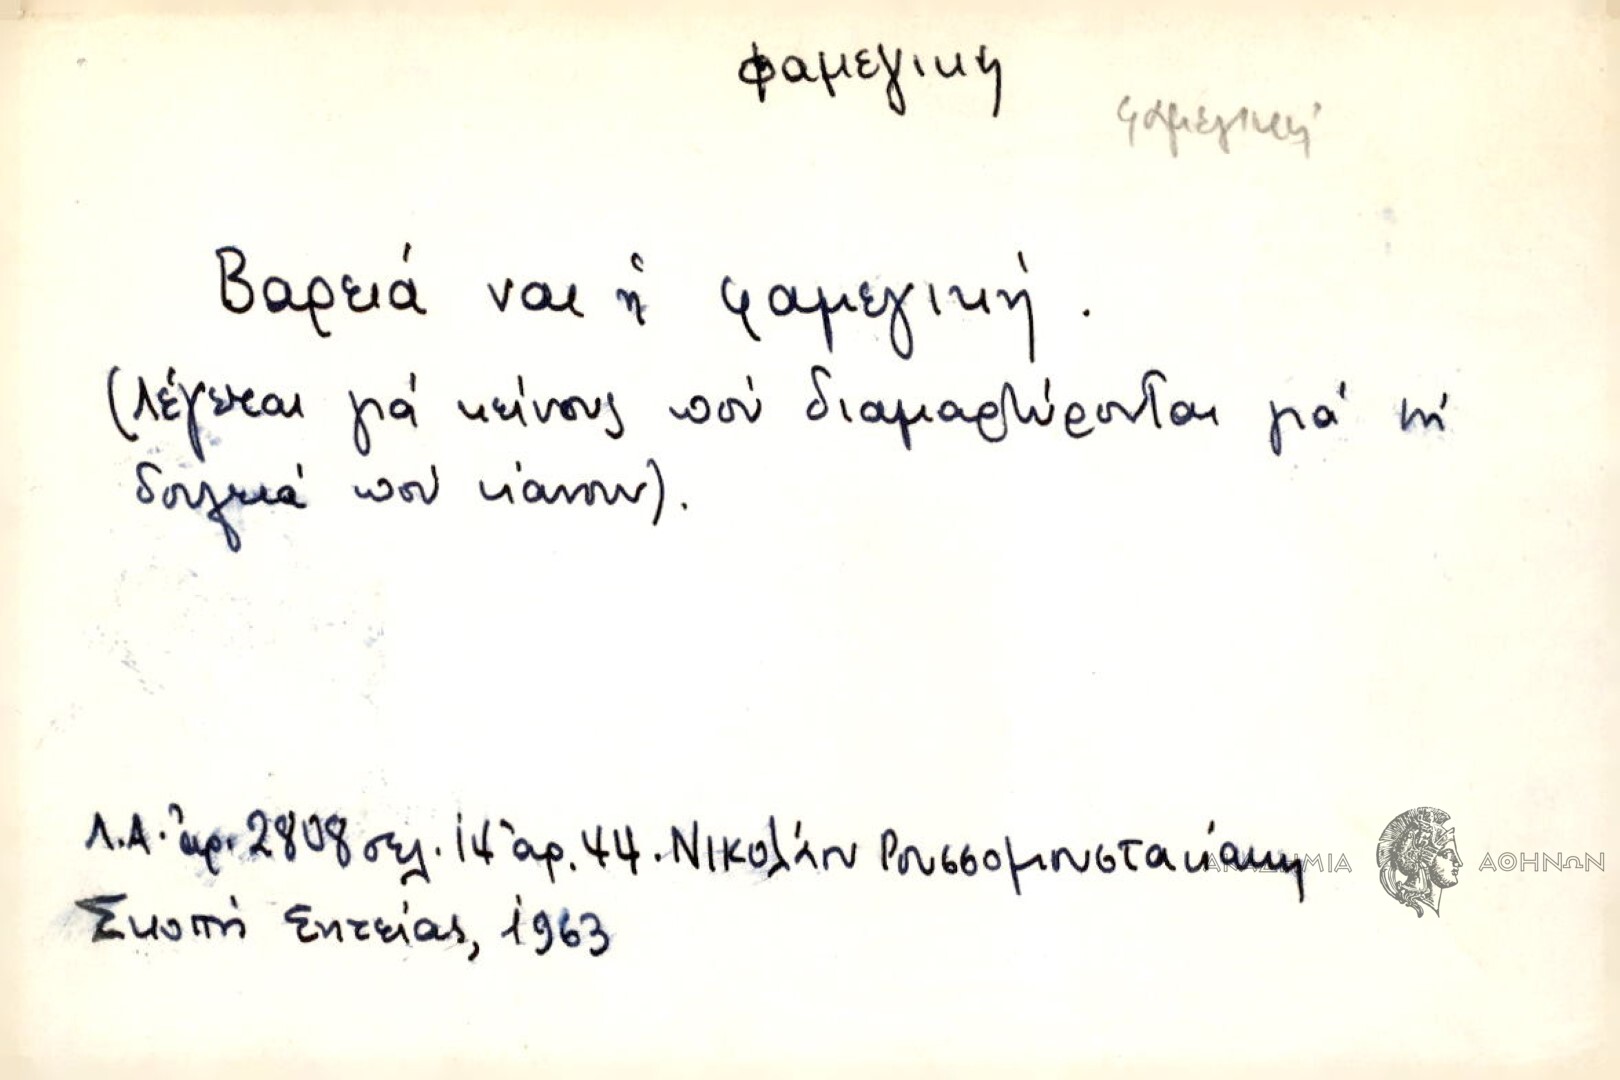 φαμεγική
φαμεγική
Βαρειά ναι ἡ φαμεγική.
(λέγεται γιά κείνους πού διαμαρτύρονται γιά τή
δουλειά πού κάνουν).
Λ.Α. ἀρ. 2808 σελ. 14 ἀρ. 44. Νικολάου Ρουσσομουστακάκη
Σκοπή Σητείας, 1963
ΑΚΑΔΗΜΙΑ ΑΘΗΝΩΝ